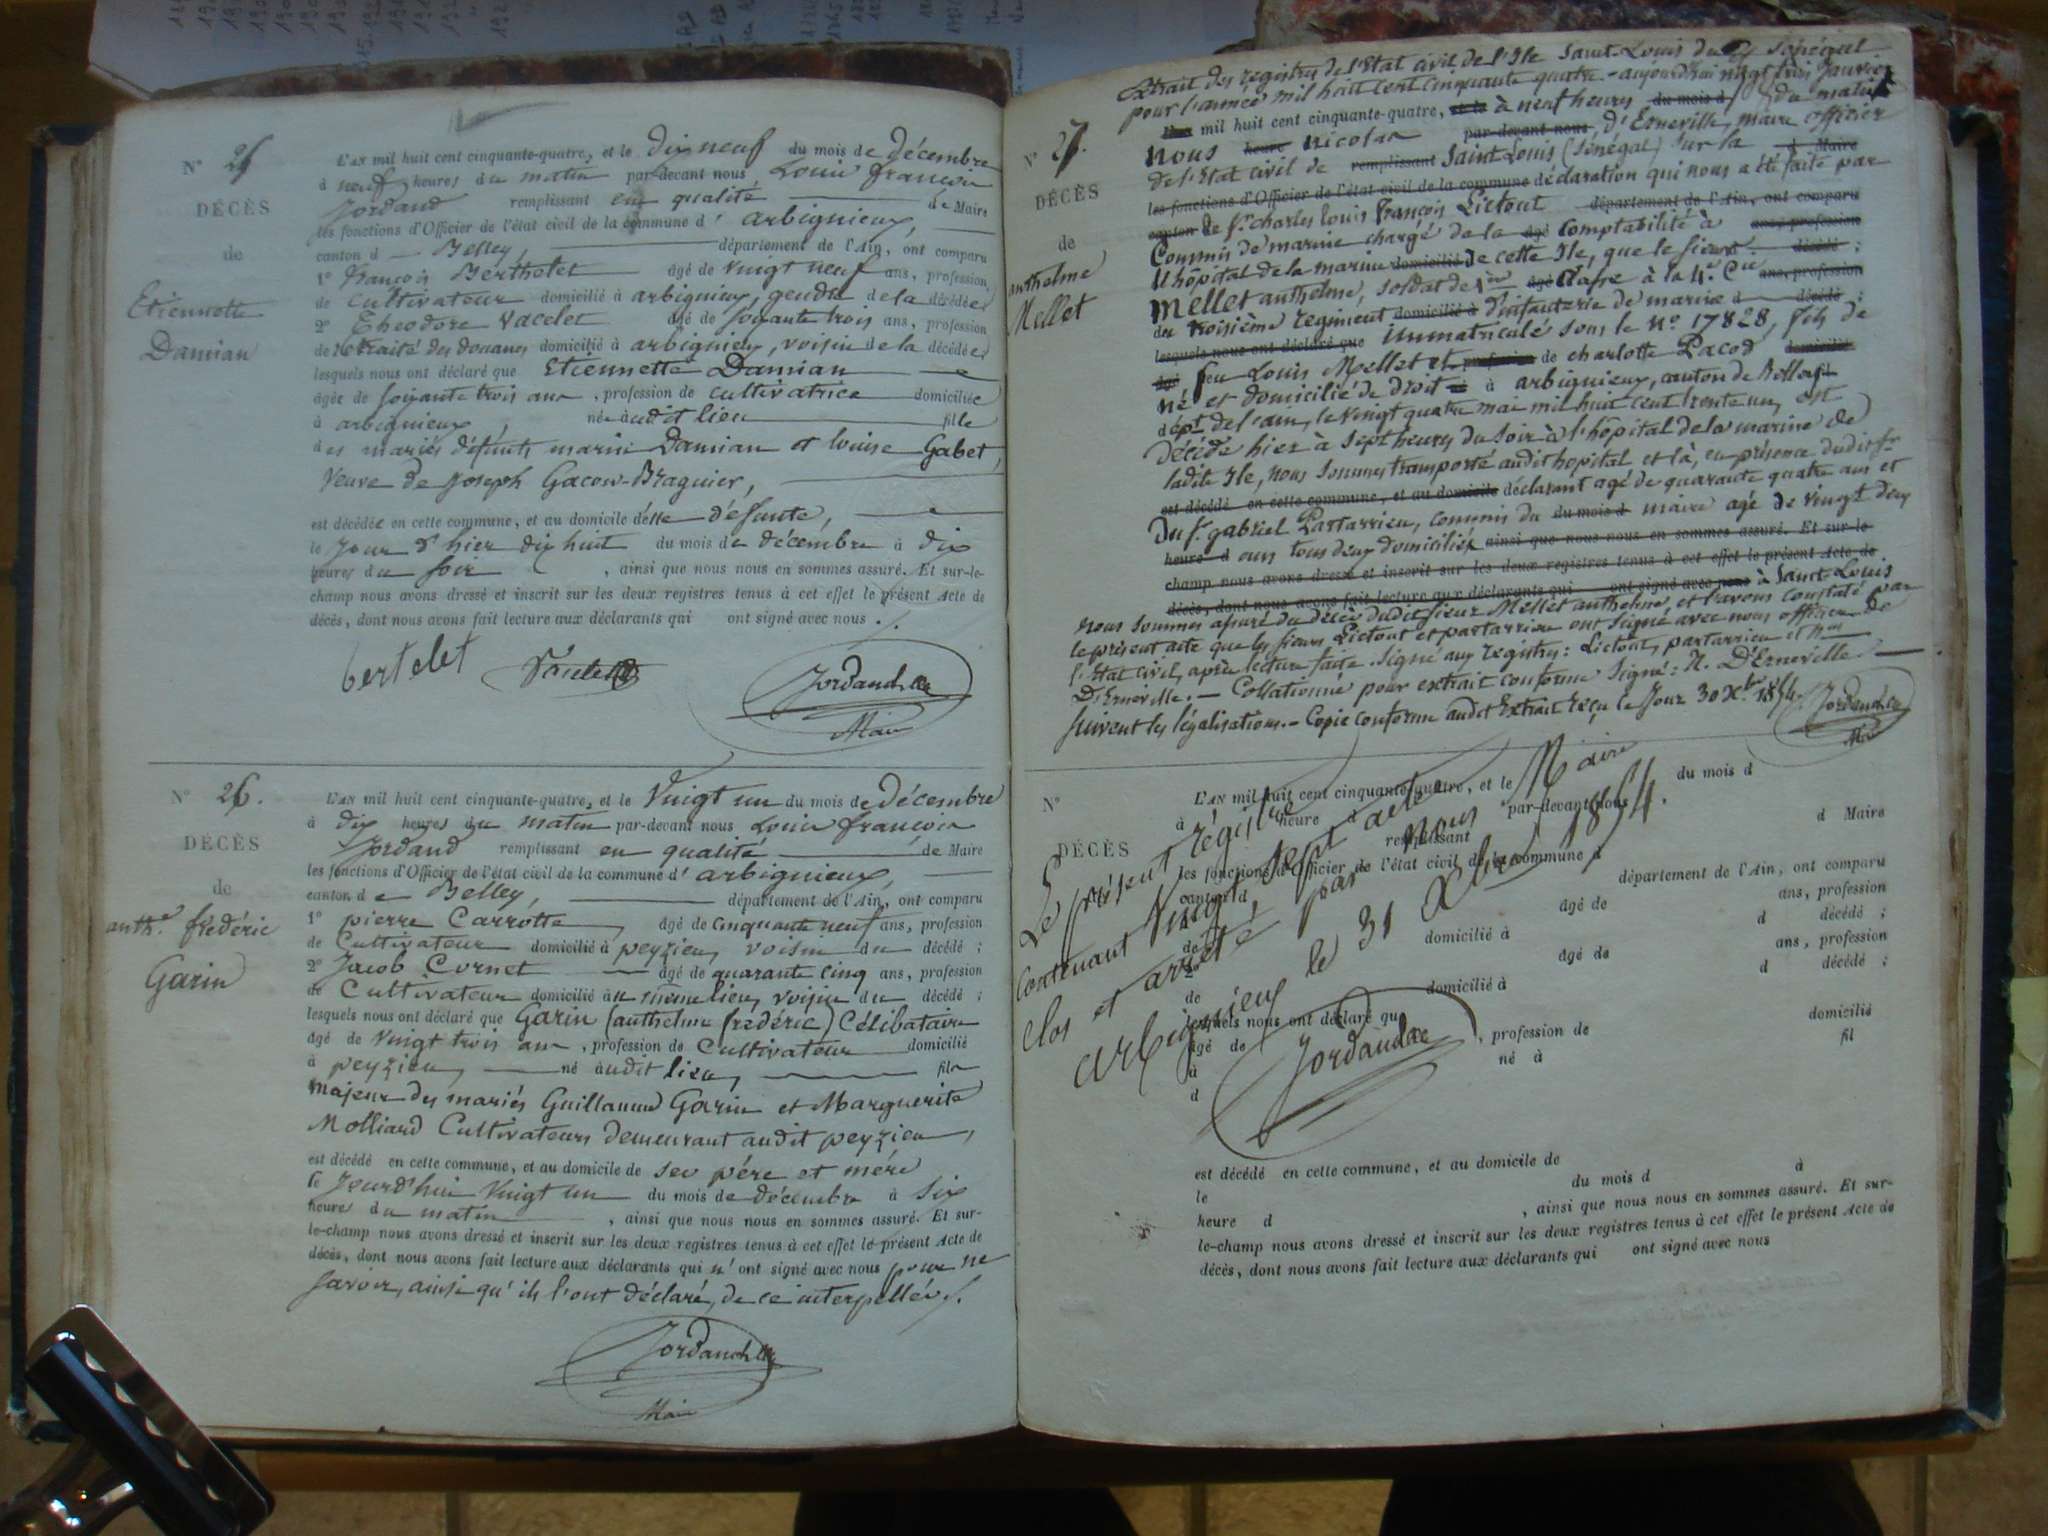 N° 25
DÉCÈS
de
Etiennette
Damian
L'AN mil huit cent cinquante-quatre, et le Dix neuf du mois de décembre
à neuf heures du matin par-devant nous Louis françois
Jordand remplissant en qualité de Maire
les fonctions d'Officier de l'état civil de la commune d'arbignieux,
canton d Belley, département de l'Ain, ont comparu
1° françois Berthelet âgé de vingt neuf ans, profession
de cultivateur domicilié à arbignieux, gendre de la décédée
2° Theodore Vacelet âgé de soixante trois ans, profession
de retraité des douanes domicilié à arbignieux, voisin de la décédée
lesquels nous ont déclaré que Etiennette Damian
âgée de soixante trois ans, profession de cultivatrice domiciliée
à arbignieux, née audit lieu fille
des mariés défunts marin Damian et louise Gabet,
Veuve de Joseph Gacon-Braguier,
est décédée en cette commune, et au domicile d'elle défunte,
le Jour d'hier dix huit du mois de décembre à dix
heures du soir, ainsi que nous nous en sommes assuré. Et sur-le-
champ nous avons dressé et inscrit sur les deux registres tenus à cet effet le présent Acte de
décès, dont nous avons fait lecture aux déclarants qui ont signé avec nous.
bertelet Vacelet Jordand
Maire
N° 26.
DÉCÈS
de
anth.e frédéric
Garin
L'AN mil huit cent cinquante-quatre, et le Vingt un du mois de décembre
à dix heures du matin par-devant nous Louis françois
Jordand remplissant en qualité de Maire
les fonctions d'Officier de l'état civil de la commune d'arbignieux,
canton de Belley, département de l'Ain, ont comparu
1° pierre Carrotte, âgé de cinquante neuf ans, profession
de Cultivateur domicilié à peyzieu, voisin du décédé ;
2° Jacob Cornet âgé de quarante cinq ans, profession
de Cultivateur domicilié au même lieu, voisin du décédé ;
lesquels nous ont déclaré que Garin (anthelme frédéric) Célibataire
âgé de vingt trois ans, profession de Cultivateur domicilié
à peyzieu, né audit lieu, fils
majeur des mariés Guillaume Garin et Marguerite
Molliard Cultivateurs demeurant audit peyzieu,
est décédé en cette commune, et au domicile de ses père et mère
le Jourd'hui Vingt un du mois de décembre à six
heures du matin, ainsi que nous nous en sommes assuré. Et sur-
le-champ nous avons dressé et inscrit sur les deux registres tenus à cet effet le présent Acte de
décès, dont nous avons fait lecture aux déclarants qui n'ont signé avec nous pour ne
savoir, ainsi qu'ils l'ont déclaré, de ce interpellés.
Jordand
Maire
Extrait des registres de l'Etat civil de l'Ile Saint-Louis du Sénégal
pour l'année mil huit cent cinquante quatre. - aujourd'hui vingt trois Janvier
N° 27.
DÉCÈS
de
anthelme
Mellet
mil huit cent cinquante-quatre, et le à neuf heures du mois d du matin
Nous heure nicolas par-devant nous, d'Erneville, maire officier
de l'Etat civil de remplissant Saint Louis (Sénégal) sur la d Maire
les fonctions d'Officier de l'état civil de la commune déclaration qui nous a été faite par
canton de Sr. charles louis françois Lictout département de l'Ain, ont comparu
Commis de marine chargé de la âgé comptabilité à ans, profession
l'hôpital de la marine domicilié de cette Ile, que le sieur décédé ;
Mellet anthelme, soldat de 1ere âgé classe à la 4.e Cie ans, profession
du troisième regiment domicilié à d'infanterie de marine d décédé ;
lesquels nous ont déclaré que immatriculé sous le N° 17828, fils de
âgé feu Louis Mellet et profession de charlotte Pacod domicilié
né et domicilié de droit à arbignieux, canton de Belley
dépt. de l'ain, le vingt quatre mai mil huit cent trente un, est
décédé hier à sept heures du soir à l'hôpital de la marine de
ladite Ile, nous sommes transporté audit hopital et là, en présence dudit Sr.
est décédé en cette commune, et au domicile déclarant agé de quarante quatre ans et
du Sr. gabriel Partarrieu, commis du du mois d maire agé de vingt deux
heure d ans tous deux domiciliés ainsi que nous nous en sommes assuré. Et sur-le-
champ nous avons dressé et inscrit sur les deux registres tenus à cet effet le présent Acte de
décès, dont nous avons fait lecture aux déclarants qui ont signé avec nous à Saint-Louis
nous sommes assuré du décès dudit sieur Mellet anthelme, et l'avons constaté par
le présent acte que les sieurs Lictout et partarrieu ont signé avec nous officier de
l'Etat civil, après lecture faite. Signé aux registres : Lictout, partarrieu et
D'Erneville. - Collationné pour extrait conforme Signé : N. D'Erneville.
Suivent les légalisations. - Copie conforme audit Extrait reçu le Jour 30 Xbre 1854. Jordand
Maire
N°
DÉCÈS
de
L'AN mil huit cent cinquante-quatre, et le du mois d
à heure d par-devant nous
remplissant d Maire
les fonctions d'Officier de l'état civil de la commune d
canton d département de l'Ain, ont comparu
âgé de ans, profession
de domicilié à d décédé ;
2° âgé de ans, profession
de domicilié à d décédé ;
lesquels nous ont déclaré qu
âgé de , profession de domicilié
à né à fil
d
Le présent régistre
contenant Vingt sept actes
clos et arrêté par nous Maire
arbignieux le 31 Xbre 1854.
Jordand
est décédé en cette commune, et au domicile de
le du mois d à
heure d , ainsi que nous nous en sommes assuré. Et sur-
le-champ nous avons dressé et inscrit sur les deux registres tenus à cet effet le présent Acte de
décès, dont nous avons fait lecture aux déclarants qui ont signé avec nous